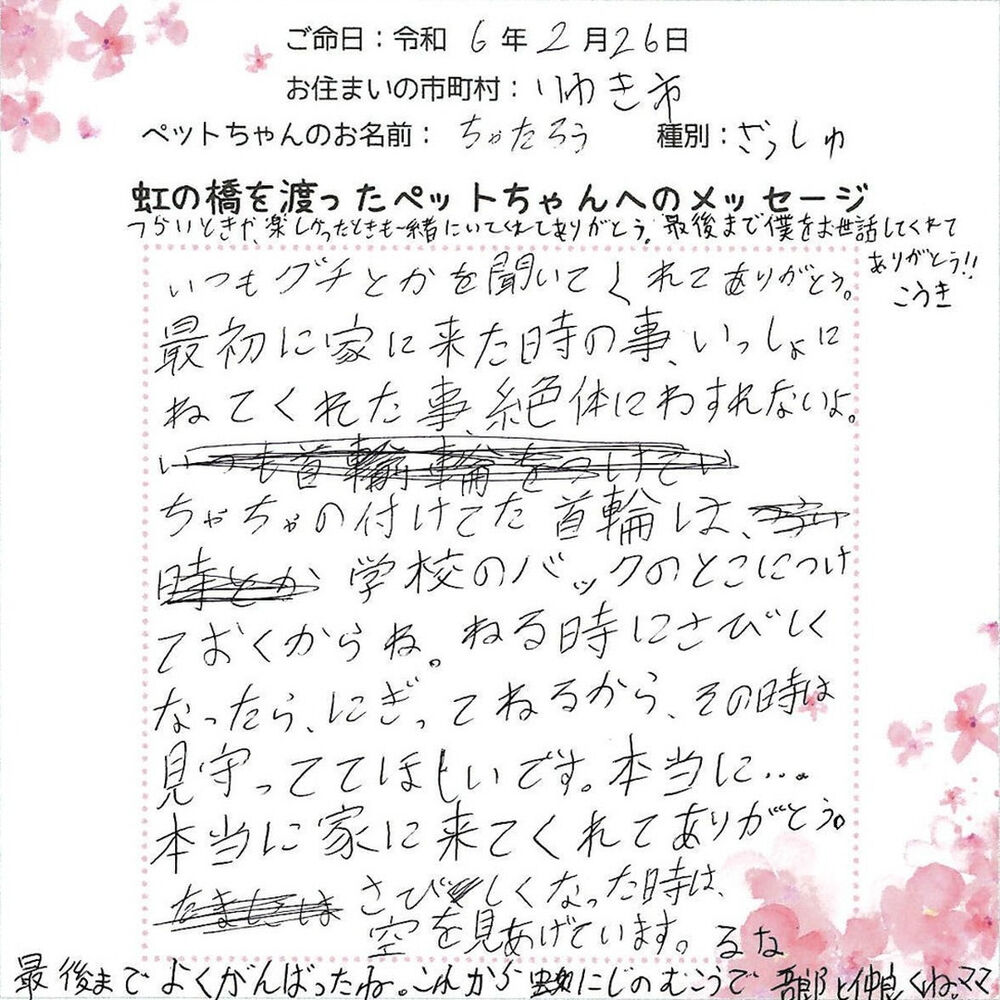 ご命日：令和 6年 2月26日
お住まいの市町村：いわき市
ペットちゃんのお名前： ちゃたろう 種別：ざっしゅ
虹の橋を渡ったペットちゃんへのメッセージ
つらいときや、楽しかったときも一緒にいてくれてありがとう。最後まで僕をお世話してくれて
ありがとう!!
こうき
いつもグチとかを聞いてくれてありがとう。
最初に家に来た時の事、いっしょに
ねてくれた事、絶体にわすれないよ。
いつも首輪輪をつけてい
ちゃちゃの付けてた首輪は、
時とか 学校のバックのとこにつけ
ておくからね。ねる時にさびしく
なったら、にぎってねるから、その時は
見守っててほしいです。本当に…。
本当に家に来てくれてありがとう。
さびしくなった時は、
空を見あげています。るな
最後までよくがんばったね。これから にじのむこうで と仲良くね。ママ